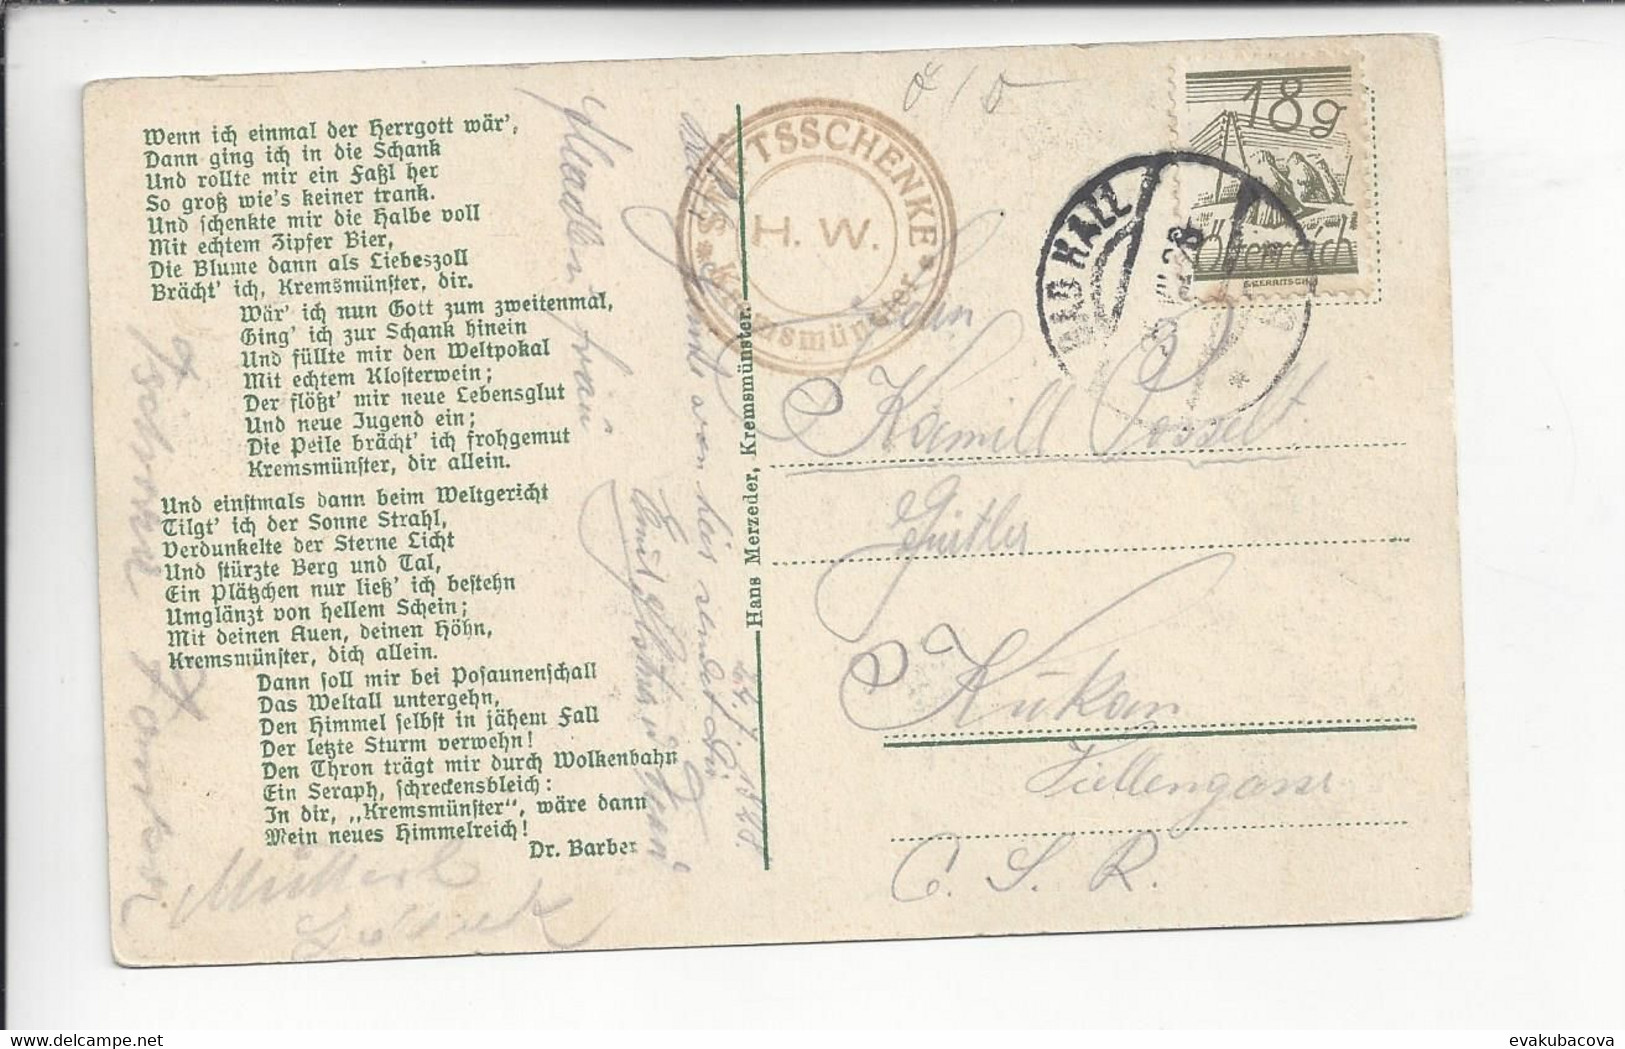 Wenn ich einmal der Herrgott wär',
Dann ging ich in die Schank
Und rollte mir ein Faßl her
So groß wie's keiner trank.
Und schenkte mir die Halbe voll
Mit echtem Zipfer Bier,
Die Blume dann als Liebeszoll
Brächt' ich, Kremsmünster, dir.
Wär' ich nun Gott zum zweitenmal,
Ging' ich zur Schank hinein
Und füllte mir den Weltpokal
Mit echtem Klosterwein;
Der flößt' mir neue Lebensglut
Und neue Jugend ein;
Die Peile brächt' ich frohgemut
Kremsmünster, dir allein.
Und einstmals dann beim Weltgericht
Tilgt' ich der Sonne Strahl,
Verdunkelte der Sterne Licht
Und stürzte Berg und Tal,
Ein Plätzchen nur ließ' ich bestehn
Umglänzt von hellem Schein;
Mit deinen Auen, deinen Höhn,
Kremsmünster, dich allein.
Dann soll mir bei Posaunenschall
Das Weltall untergehn,
Den Himmel selbst in jähem Fall
Der letzte Sturm verwehn!
Den Thron trägt mir durch Wolkenbahn
Ein Seraph, schreckensbleich:
In dir, „Kremsmünster“, wäre dann
Mein neues Himmelreich!
Dr. Barber
Hans Merzeder, Kremsmünster.
TSSCHENKE
H. W.
Kremsmünster
18g
Österreich
BAD HALL
28
Kamill Posselt
Gürtler
Kukan
C. S. R.
von hier sendet Dir
24. 7. 1928
evakubacova